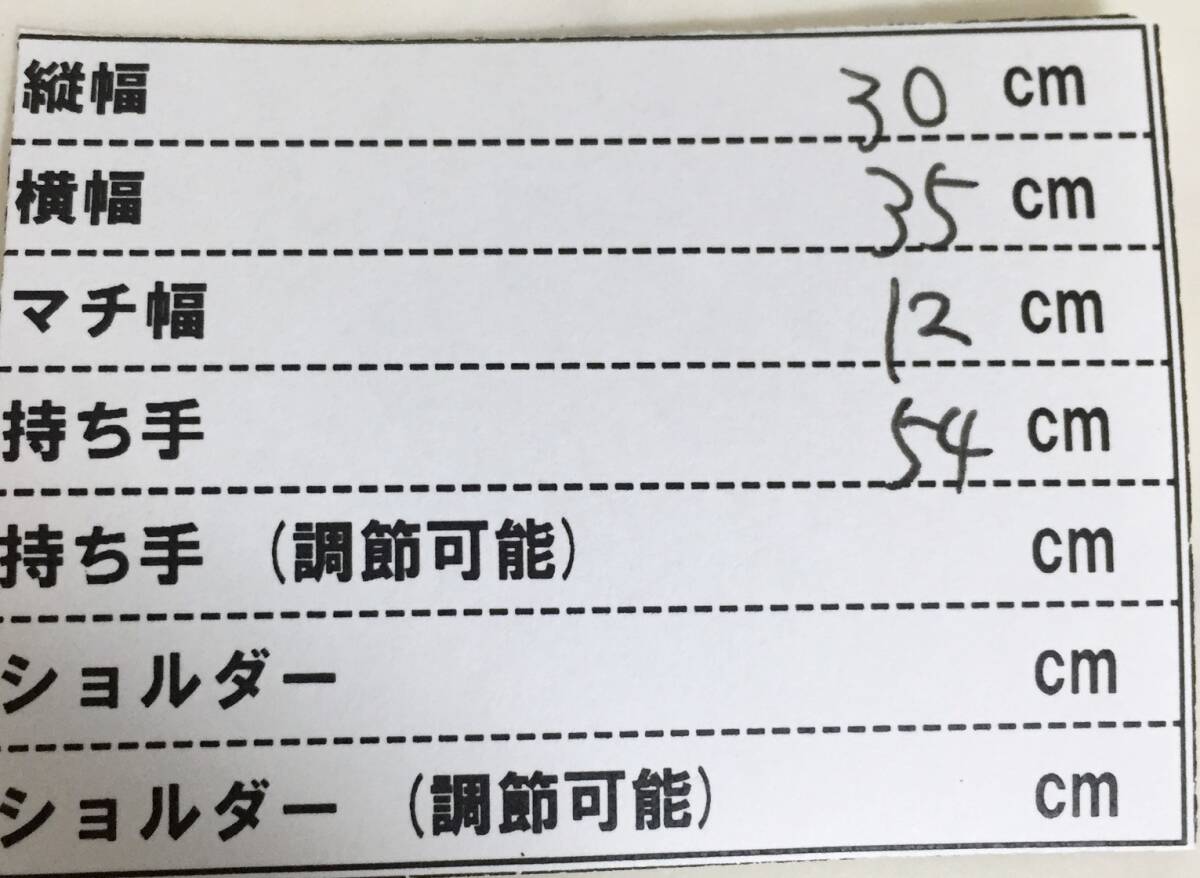 縦幅 30 cm
横幅 35 cm
マチ幅 12 cm
持ち手 54 cm
持ち手 (調節可能) cm
ショルダー cm
ショルダー (調節可能) cm